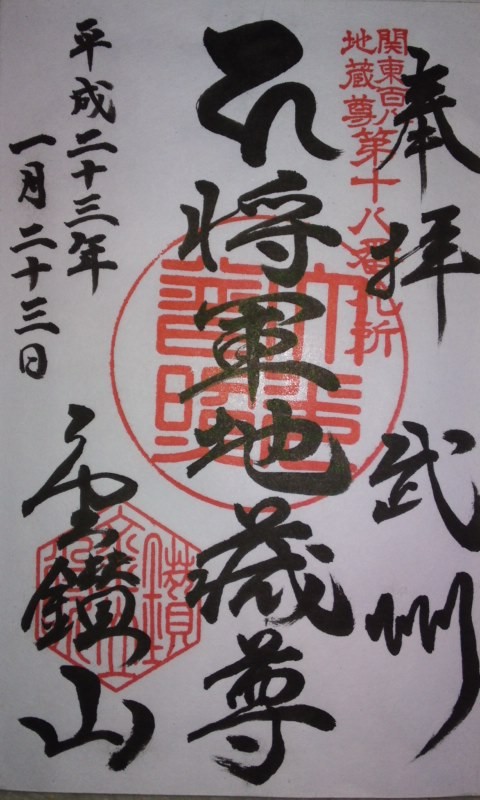 奉拝 武州
関東百八
地蔵尊第十八番札所
将軍地蔵尊
平成二十三年
一月二十三日
雲鑑山